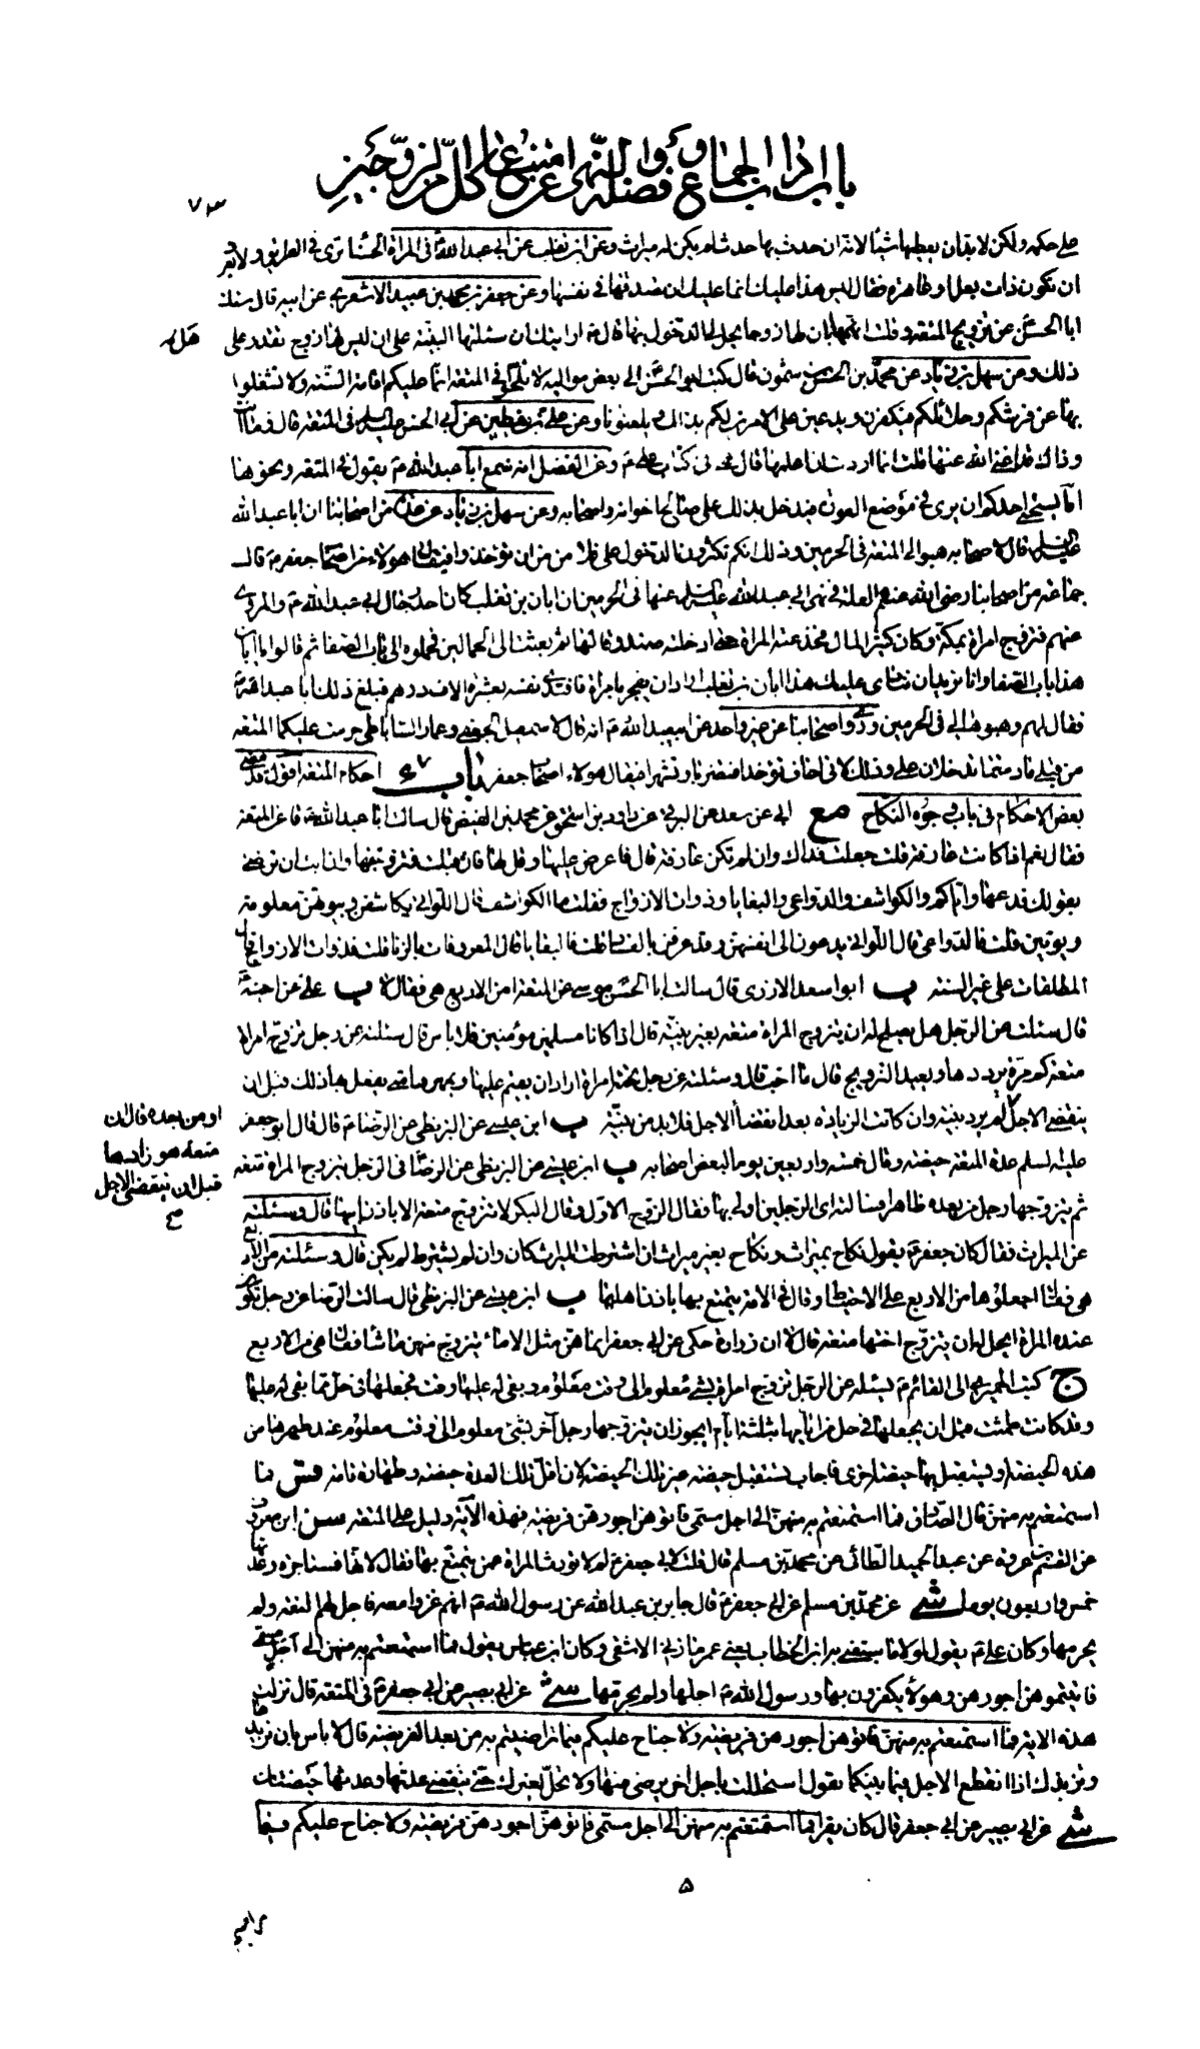 باب اداب الجماع وفضله والنهى عن امتناع كل من الزوجين
٧٣
على حكمه ولكن لابد ان يعطيها شيئا لانه ان حدث بها حدث لم يكن له ميراث وعن ابن تغلب عن ابى عبد الله فى المراة الحسناء ترى فى الطريق ولا يعرف
ان تكون ذات بعل او عاهرة فقال ليس هذا عليك انما عليك ان تصدقها فى نفسها وعن جعفر بن محمد بن عبيد الاشعرى عن ابيه قال سئلت
ابا الحسن عن تزويج المتعة وقلت اتهمها بان لها زوجا يحل لى الدخول بها قال ارايتك ان سئلتها البينة على ان ليس لها زوج تقدر على
هل
ذلك وعن سهل بن زياد عن محمد بن الحسن بن شمون قال كتب ابو الحسن الى بعض مواليه لا تلحوا فى المتعة انما عليكم اقامة السنة ولا تشغلوا
بها عن فرشكم وحلائلكم فيكفرن ويدعين على الامرين لكم بذلك ويلعنونا وعن على بن يقطين عن ابى الحسن عليه السلم فى المتعة قال وما انت
وذاك قد اغنى الله عنها قلت انما اردت ان اعلمها قال هى فى كتاب على م وعن المفضل انه سمع ابا عبد الله م يقول فى المتعة ونحوها
اما يستحيى احدكم ان يرى فى موضع العورة فيدخل بذلك على صالحى اخوانه واصحابه وعن سهل بن زياد عن عدة من اصحابنا ان ابا عبد الله
عليه السلم قال لاصحابه هبوا لى المتعة فى الحرمين وذلك انكم تكثرون الدخول على فلا امن من ان تؤخذوا فيقال هؤلاء من اصحاب جعفر م قال
جماعة من اصحابنا رضى الله عنهم العلة فى نهى ابى عبد الله عليه السلم عنها فى الحرمين ان ابان بن تغلب كان احد رجال ابى عبد الله م والمروى
عنهم فتزوج امراة بمكة وكان كثير المال فخدعته المراة حتى ادخلته صندوقا لها ثم بعثت الى الحمالين فحملوه الى باب الصفا ثم قالوا يا ابان
هذا باب الصفا وانا نريد ان ننادى عليك هذا ابان بن تغلب اراد ان يفجر بامراة فافتدى نفسه بعشرة الاف درهم فبلغ ذلك ابا عبد الله م
فقال لهم وهبوها لى فى الحرمين وروى اصحابنا عن غير واحد عن ابيعبد الله م انه قال لاسمعيل الجعفى وعمار الساباطى حرمت عليكما المتعة
من قبلى ما دمتما تدخلان على وذلك لانى اخاف تؤخذا فتضربا وتشهرا فيقال هؤلاء اصحاب جعفر باب احكام المتعة اقول قد مضى
بعض الاحكام فى باب وجوه النكاح مع ابى عن سعد عن البرقى عن داود بن اسحق عن محمد بن الفيض قال سالت ابا عبد الله م عن المتعة
فقال نعم اذا كانت عارفة قلت جعلت فداك وان لم تكن عارفة قال فاعرض عليها وقل لها فان قبلت فتزوجها وان ابت ان ترضى
بقولك فدعها واياكم والكواشف والدواعى والبغايا وذوات الازواج فقلت ما الكواشف قال اللواتى يكاشفن وبيوتهن معلومة
ويؤتين قلت فالدواعى قال اللواتى يدعون الى انفسهن وقد عرفن بالفساد قلت فالبغايا قال المعروفات بالزنا قلت فذوات الازواج قال
المطلقات على غير السنة ب ابو اسعد الازدى قال سالت ابا الحسن موسى عن المتعة امن الاربع هى فقال لا ب على عن اخيه م
قال سئلته عن الرجل هل يصلح له ان يتزوج المراة متعة بغير بينة قال اذا كانا مسلمين مؤمنين فلا باس قال سئلته عن رجل تزوج امراة
متعة كم مرة يرددها ويعيد التزويج قال ما احب قال وسئلته عن رجل تحته امراة اراد ان يقيم عليها ويمهرها متى يفعل بها ذلك قبل ان
ينقضى الاجل لم يرد بينة وان كانت الزيادة بعد انقضاء الاجل فلابد من بينة ب ابن عيسى عن البزنطى عن الرضا م قال قال ابو جعفر
او من بعده قال ان
متعة هو زادها
قبل ان ينقضى الاجل
صح
عليه السلم عدة المتعة حيضة وقال خمسة واربعين يوما لبعض اصحابه ب ابن عيسى عن البزنطى عن الرضا فى الرجل يتزوج المراة متعة
ثم يتزوجها رجل من بعده ظاهرا وسالته اى الرجلين اولى بها فقال الزوج الاول وقال البكر لا تتزوج متعة الا باذن ابيها قال وسئلته
عن الميراث فقال كان جعفر م يقول نكاح بميراث ونكاح بغير ميراث ان اشترطت الميراث كان وان لم يشترط لم يكن قال وسئلته من الاربع
هى فقال اجعلوها من الاربع على الاحتياط وقال فى الامة يتمتع بها باذن اهلها ب ابن عيسى عن البزنطى قال سالت الرضا عن رجل تكون
عنده المراة ايحل له ان يتزوج اختها متعة قال لا ان زرارة حكى عن ابى جعفر انما هن مثل الاماء يتزوج منهن ما شاء فقال هى من الاربع
ج كتب الحميرى الى القائم م يسئله عن الرجل تزوج امراة بشىء معلوم الى وقت معلوم وبقى له عليها وقت فجعلها فى حل مما بقى له عليها
وقد كانت طمثت قبل ان يجعلها فى حل من ايامها بثلثة ايام ايجوز ان يتزوجها رجل آخر بشىء معلوم الى وقت معلوم عند طهرها من
هذه الحيضة او يستقبل بها حيضة اخرى فاجاب يستقبل حيضة غير تلك الحيضة لان اقل تلك العدة حيضة وطهارة تامة فس فما
استمتعتم به منهن قال الصادق فما استمتعتم به منهن الى اجل مسمى فاتوهن اجورهن فريضة فهذه الآية دليل على المتعة سن ابن معروف
عن القسم بن عروة عن عبد الحميد الطائى عن محمد بن مسلم قال قلت لابى جعفر م لم لا تورث المراة عمن يتمتع بها فقال لانها مستاجرة وعدتها
خمس واربعون يوما شى عن محمد بن مسلم عن ابى جعفر م قال جابر بن عبد الله عن رسول الله م انهم غزوا معه فاحل لهم المتعة ولم
يحرمها وكان على م يقول لولا ما سبقنى به ابن الخطاب يعنى عمر ما زنى الا شقى وكان ابن عباس يقول فما استمتعتم به منهن الى اجل مسمى
فاتيتموهن اجورهن وهؤلاء يكفرون بها ورسول الله م احلها ولم يحرمها شى عن ابى بصير عن ابى جعفر م فى المتعة قال نزلت
هذه الاية فما استمتعتم به منهن فاتوهن اجورهن فريضة ولا جناح عليكم فيما تراضيتم به من بعد الفريضة قال لا باس بان تزيدها
وتزيدك اذا انقطع الاجل فيما بينكما يقول استحللت باجل اخر برضى منها ولا تحل لغيرك حتى تنقضى عدتها وعدتها حيضتان
شى عن ابى بصير عن ابى جعفر قال كان يقرا فما استمتعتم به منهن الى اجل مسمى فاتوهن اجورهن فريضة ولا جناح عليكم فيما
۵